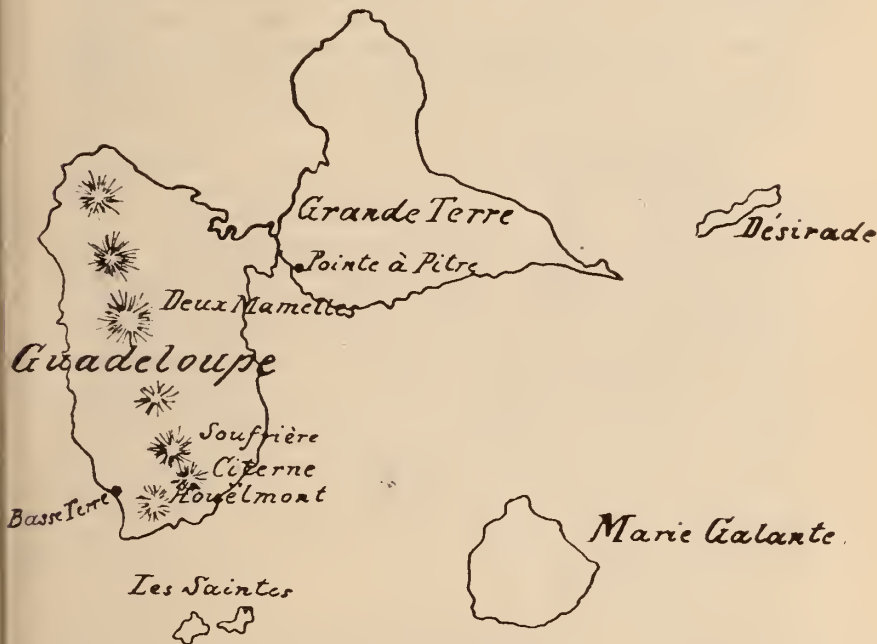 Grande Terre
Désirade
Pointe à Pitre
Deux Mamelles
Guadeloupe
Soufrière
Citerne
Houëlmont
Basse Terre
Marie Galante.
Les Saintes